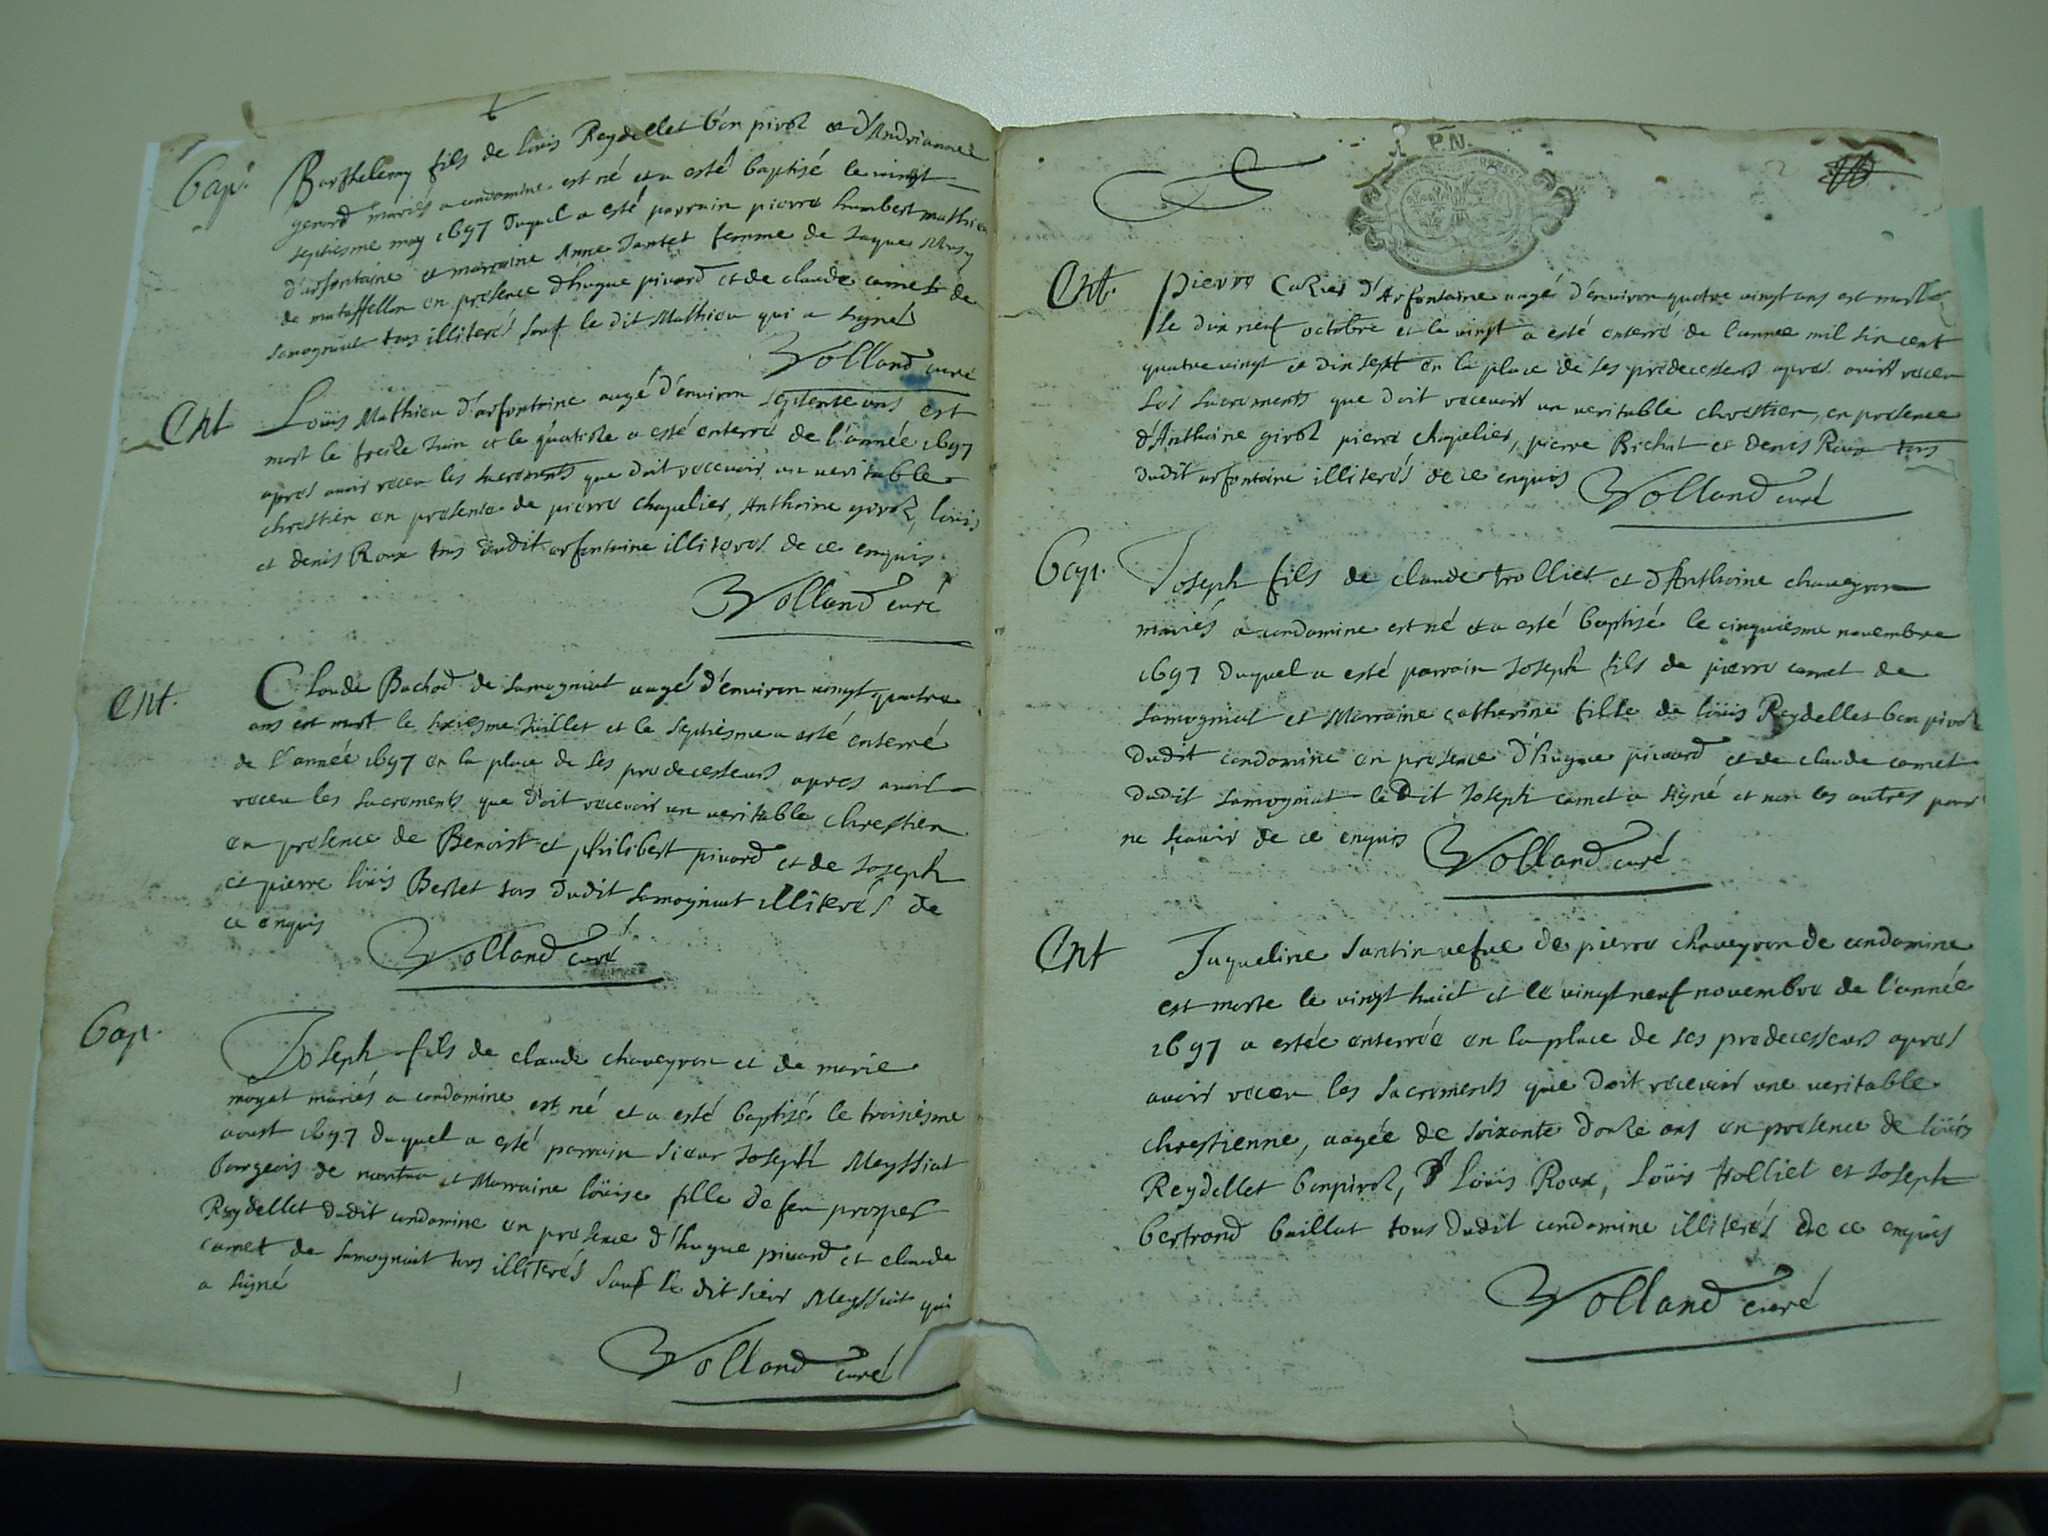 Bap. Barthelemy fils de Loüis Reydellet bonpivoz et d'Andrianne
genard mariés a condamine est né et a esté baptisé le vingt
septiesme may 1697 duquel a esté parrain pierre humbert mathieu
d'arfontaine et marraine Anne Jantet femme de Jaque
de mataffellon en présence d'hugue picard et de claude camet de
Samogniat tous illiterés sauf le dit Mathieu qui a signé
Volland curé
Ent Loüis Mathieu d'arfontaine aagé d'environ septente ans est
mort le treize Juin et le quatorze a esté enterré de l'année 1697
apres avoir receu les sacrements que doit recevoir un veritable
chrestien en presence de pierre chapelier, Anthoine giroz, loüis
et denis Roux tous dudit arfontaine illiterés de ce enquis
Volland curé
Ent. Claude Bachod de Samogniat aagé d'environ vingt quatre
ans est mort le sixiesme Juillet et le septiesme a esté enterré
de l'année 1697 en la place de ses predecesseurs apres avoir
receu les sacrements que doit recevoir un veritable chrestien
en presence de Benoist et philibert picard et de Joseph
et pierre loüis Berlet tous dudit Samogniat illiterés de
ce enquis
Volland curé
Bap. Joseph fils de claude chaveyron et de marie
moyat mariés a condamine est né et a esté baptisé le troisiesme
aoust 1697 duquel a esté parrain sieur Joseph Meyssiat
bourgeois de nantua et Marraine loüise fille de feu prosper
Reydellet dudit condamine en presence d'hugue picard et claude
camet de Samogniat tous illiterés sauf le dit sieur Meyssiat qui
a signé
Volland curé
P.N.
Ent. pierre d'Arfontaine aagé d'environ quatre vingt ans est mort
le dix neuf octobre et le vingt a esté enterré de l'annee mil six cent
quatre vingt et dix sept en la place de ses predecesseurs apres avoir receu
les sacrements que doit recevoir un veritable chrestien, en presence
d'Anthoine giroz pierre chapelier, pierre Bichat et denis Roux tous
dudit arfontaine illiterés de ce enquis
Volland curé
Bap. Joseph fils de claude trolliet et d'Anthoine chaveyron
mariés a condamine est né et a esté baptisé le cinquiesme novembre
1697 duquel a esté parrain Joseph fils de pierre camet de
Samogniat et Marraine catharine fille de loüis Reydellet bonpivoz
dudit condamine en presence d'hugue picard et de claude camet
dudit Samogniat le dit Joseph camet a signé et non les autres pour
ne scavoir de ce enquis
Volland curé
Ent Jaqueline Jantin vefve de pierre chaveyron de condamine
est morte le vingt huict et le vingt neuf novembre de l'année
1697 a estée enterrée en la place de ses predecesseurs apres
avoir receu les sacrements que doit recevoir une veritable
chrestienne, aagée de soixante douze ans en presence de loüis
Reydellet bonpivoz, Loüis Roux, Loüis trolliet et Joseph
bertrand baillat tous dudit condamine illiterés de ce enquis
Volland curé